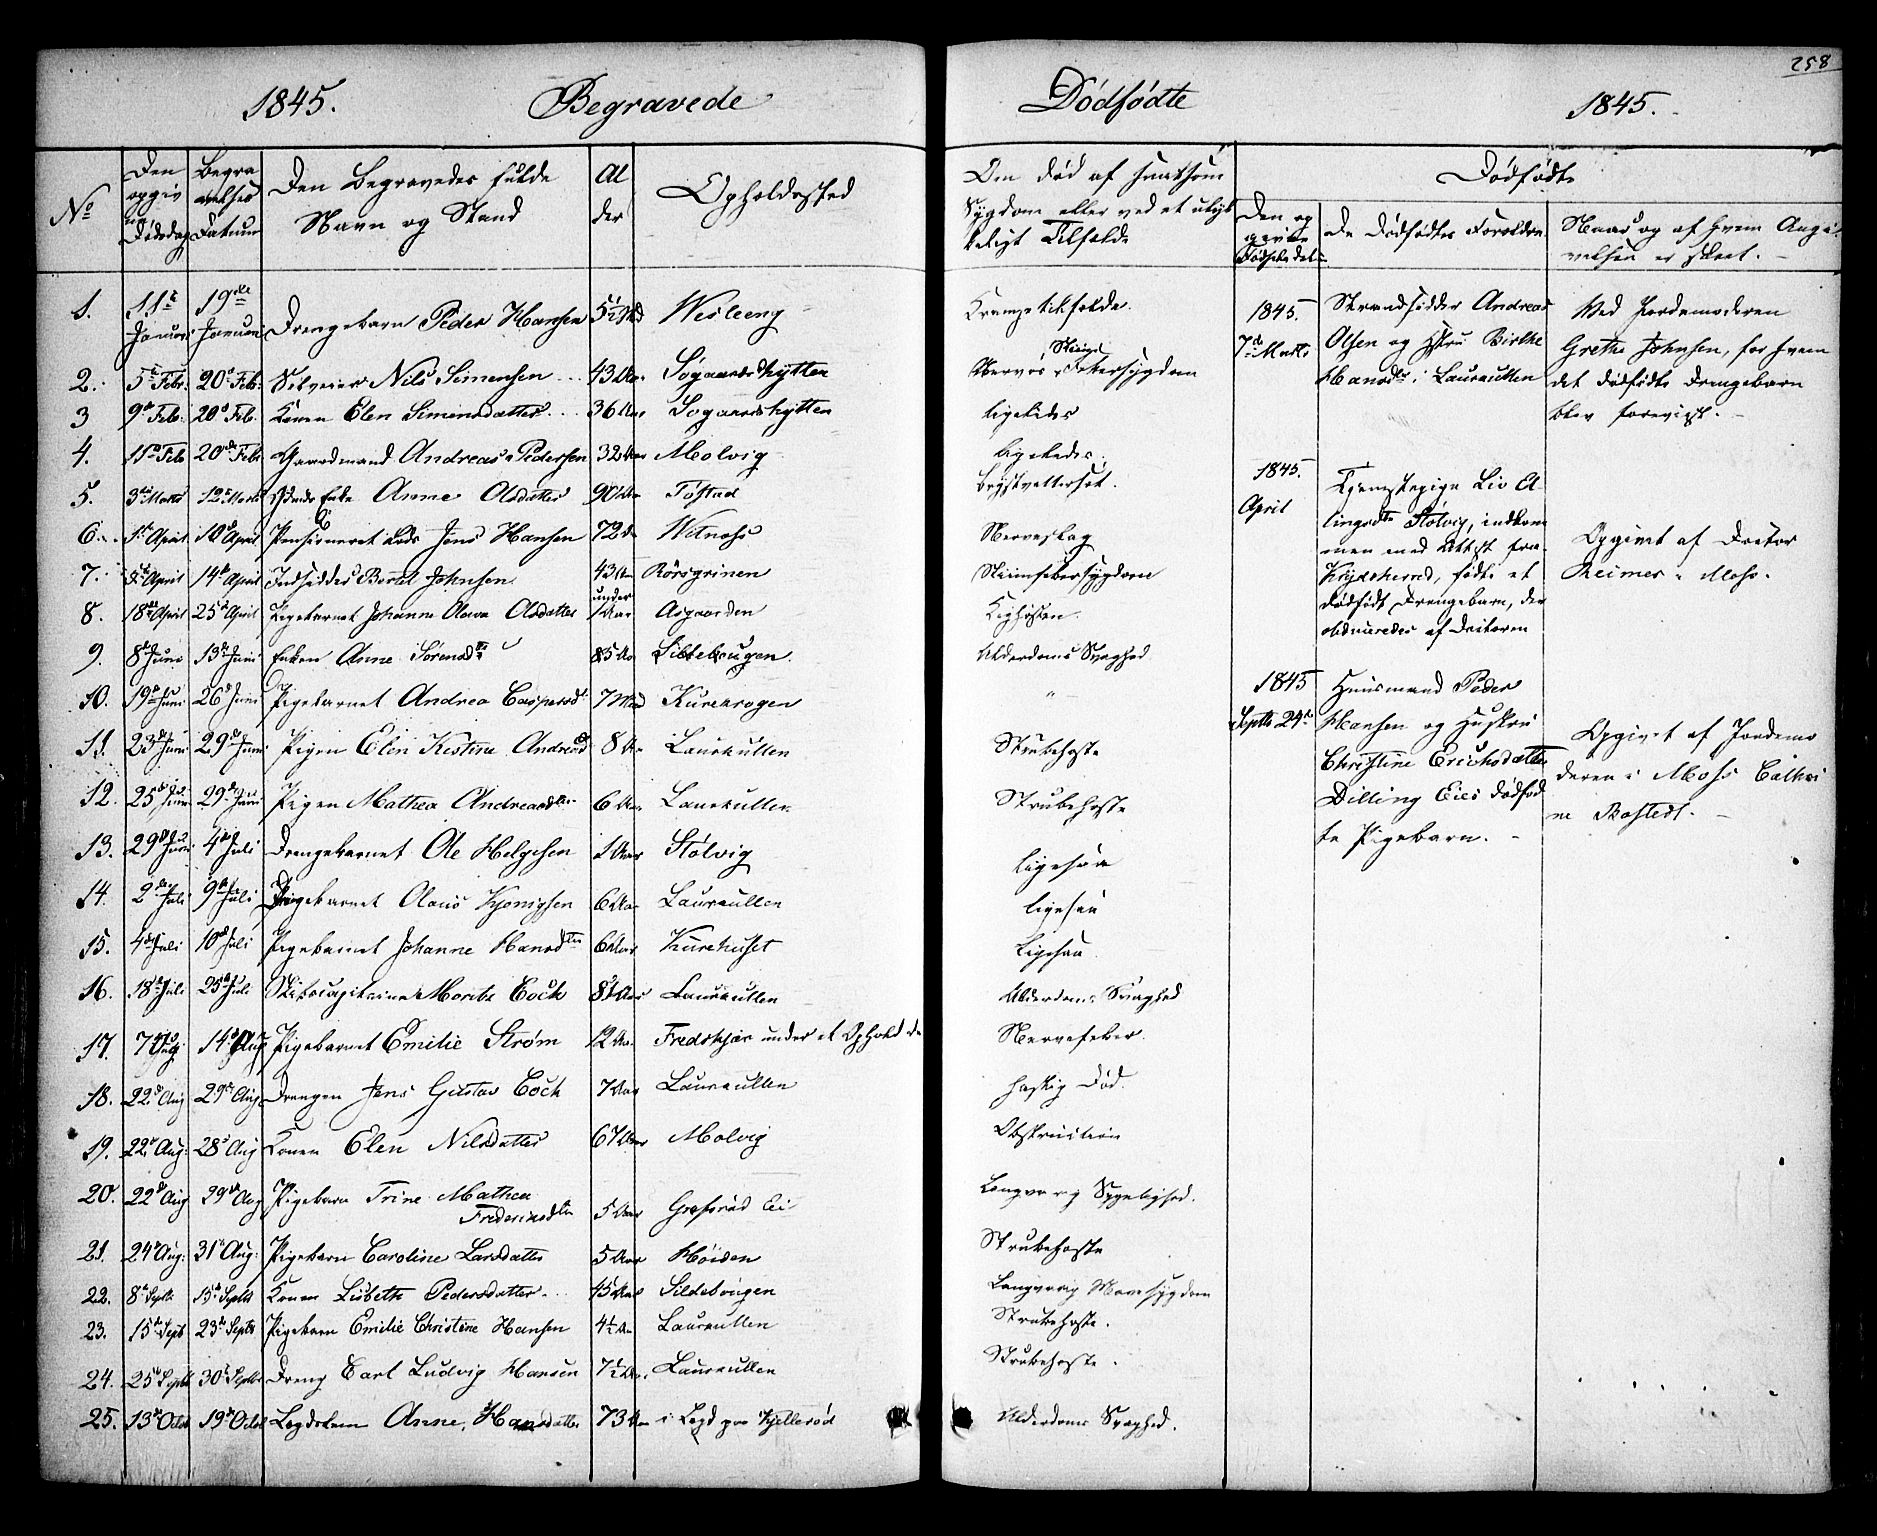 258
1845. Begravede
Dødfødte 1845.
No
Den opgivne Dødsdag
Begravelses Datum
Den Begravedes fulde Navn og Stand
Alder
Opholdssted
Om død af smitsom Sygdom eller ved et ulykkeligt Tilfælde
Dødfødte
Den opgivne Fødselsdel
De Dødfødtes Forældre
Naar og af hvem Angivelsen er skeet. -
1. 11te Januar 19de Januar Drengebarn Peder Hansen 5½ Md Krampetilfælde.
2. 5te Febr: 20de Feb: Nils Simensen 43 Aar Søgaardshytten Nervøs Sliimfebersygdom
3 9de Feb: 20de Feb. Konen Elen Simensdatter 36 Aar Søgaardshytten ligeledes
4. 11te Feb 20de Feb: Gaardmand Andreas Pedersen 32 Aar Molvig ligeledes.
5. 3die Marts 12te Marts Enke Anne Olsdatter 90 Aar Tøstad
6. 1te April 10de April Pensioneret Lods Jens Hansen 72 Aar Nerveslag
7. 5te April 14de April Indsidder Bernt Johnsen 43 Aar Rørsgrinen Sliimfebersygdom
8. 18de April 25de April Pigebarnet Johanne Olava Olsdatter under 1 Aar Asgaarden Kighosten.
9. 8de Juni 13de Juni Enken Anne Sørensdtr 85 Aar Alderdoms Svaghed
10. 19de Juni 26de Juni Pigebarnet Andrea Caspersdtr 7 Md "
11. 23de Juni 29de Juni Pigen Elen Kistine Andreasdtr 8 Aar Laurkullen Strubehoste
12. 25de Juni 29de Juni Pigen Mathea Andreasdtr 6 Aar Laurkullen Strubehoste
13. 29de Juni 4de Juli Drengebarnet Ole Helgesen 1 Aar Støtvig ligesaa
14. 2den Juli 9de Juli Drengebarnet Olaus 6 Aar Laurkullen ligesaa
15. 4de Juli 10de Juli Pigebarnet Johanne Hansdtr 6 Aar Kurehuset Ligesaa.
16. 18de Juli 25de Juli Skibscapitaine Moritz Cock 81 Aar Laurkullen Alderdoms Svaghed
17. 7de Aug 14de Aug Pigebarnet Emilie Strøm 12 Aar Fredskjær under et Ophold der Nervefeber.
18. 22de Aug 29de Aug Drengen Jens Gustav Cock 7 Aar Laurkullen hastig Død.
19. 22de Aug: 28de Aug Konen Elen Nilsdatter 67 Aar Molvig Obstruction
20. 22de Aug 29de Aug Pigebarn Trine Mathea Fredriksdtr 5 Aar Grefsrød Eie Langvarig Sygelighed.
21. 24de Aug: 31te Aug: Pigebarn Caroline Larsdatter 5 Aar Høiden Strubehoste
22. 8de Septb 15de Septb Konen Lisbeth Pedersdatter 45 Aar Sildebougen Langvarig Mavesygdom
23. 15de Sept 23de Septb Pigebarn Emilie Christine Hansen 4½ Aar Laurkullen Strubehoste.
24. 25de Septb 30te Septb Dreng Carl Ludvig Hansen 7½ Aar Laurkullen Strubehoste.
25. 13de Octob 19de Octob Lægdslem Anne Hansdatter 73 Aar i Lægd paa Kjellerød Alderdoms Svaghed.
1845. 7de Marts
Strandsidder Andreas
Olsen og Hstru Birthe
Hansdtr i Laurkullen
Ved Jordemoderen
Grethe Johnsen, for hvem
det dødfødte Drengebarn
blev foreviist. -
1845. April
Tjenestepige Liv
Støtvig, indkom
men med Attest fra
fødte et
dødfødt Drengebarn, der
obduceredes af Doctoren
Opgivet af Doctor
Reimer i Moss.
1845 Septb 24de
Huusmand Peder
Hansen og Hustru
Christine Erichsdatter
Dilling Eies dødfød
te Pigebarn. -
Opgivet af Jordemo
deren i Moss Cathri
ne Bastedt. -